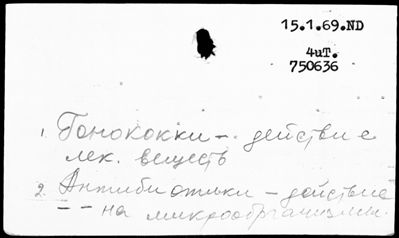 15.1.69.ND
4uT.
750636
1. Гонококки – действие
лек. веществ
2. Антибиотики – действие
– – на микроорганизмы.